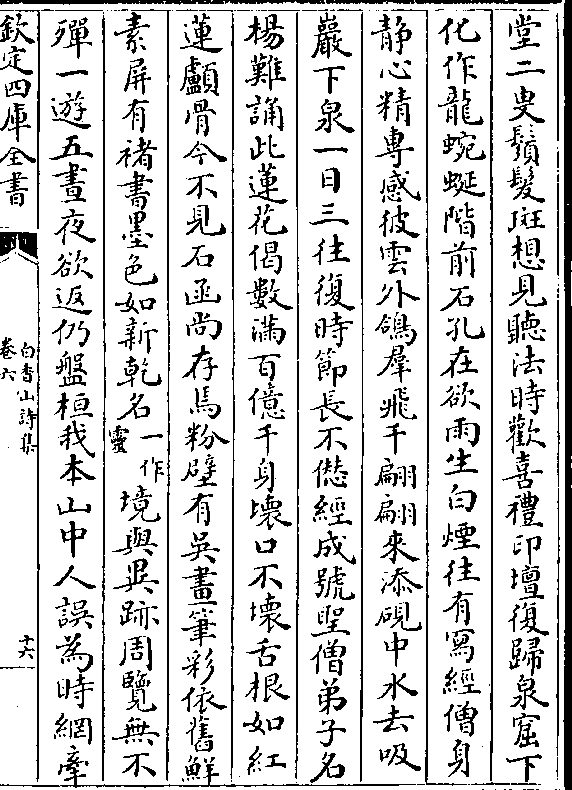 堂二叟鬚髮斑想見聽法時歡喜禮印壇復歸泉窟下
化作龍蜿蜒階前石孔在欲雨生白煙往有寫經僧身
静心精專感彼雲外鴿羣飛千翩翩來添硯中水去吸
巖下泉一日三往復時節長不僁經成號聖僧弟子名
楊難誦此蓮花偈數滿百億千身壞口不壞舌根如紅
蓮顱骨今不見石函尚存焉粉壁有吳畫筆彩依舊鮮
素屏有褚書墨色如新乾名一作靈境與異跡周覽無不
殫一遊五晝夜欲返仍盤桓我本山中人誤為時網牽
欽定四庫全書
白香山詩集
卷六
十六